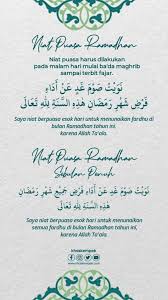 Niat Puasa Ramadhan
Niat puasa harus dilakukan
pada malam hari mulai ba'da maghrib
sampai terbit fajar.
نَوَيْتُ صَوْمَ غَدٍ عَنْ أَدَاءِ
فَرْضِ شَهْرِ رَمَضَانِ هَذِهِ السَّنَةِ لِلّٰهِ تَعَالَى
Saya niat berpuasa esok hari untuk menunaikan fardhu di
bulan Ramadhan tahun ini,
karena Allah Ta'ala.
Niat Puasa Ramadhan
Sebulan Penuh
نَوَيْتُ صَوْمَ غَدٍ عَنْ أَدَاءِ فَرْضِ جَمِيْعِ شَهْرِ رَمَضَانِ
هَذِهِ السَّنَةِ لِلّٰهِ تَعَالَى
Saya niat berpuasa esok hari untuk menunaikan
semua fardhu di bulan Ramadhan tahun ini,
karena Allah Ta'ala.